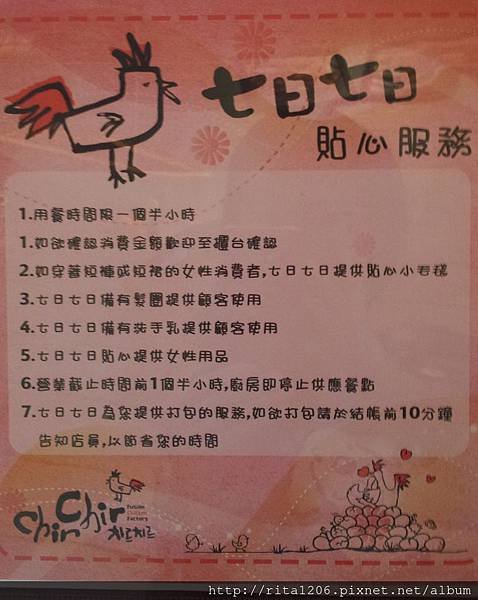 七日七日
貼心服務
1.用餐時間限一個半小時
1.如欲確認消費金額歡迎至櫃台確認
2.如穿著短褲或短裙的女性消費者,七日七日提供貼心小毛毯
3.七日七日備有髮圈提供顧客使用
4.七日七日備有洗手乳提供顧客使用
5.七日七日貼心提供女性用品
6.營業截止時間前1個半小時,廚房即停止供應餐點
7.七日七日為您提供打包的服務,如欲打包請於結帳前10分鐘
告知店員,以節省您的時間
Chir Chir
Fusion
Chicken
Factory
치르치르
http://rita1206.pixnet.net/album